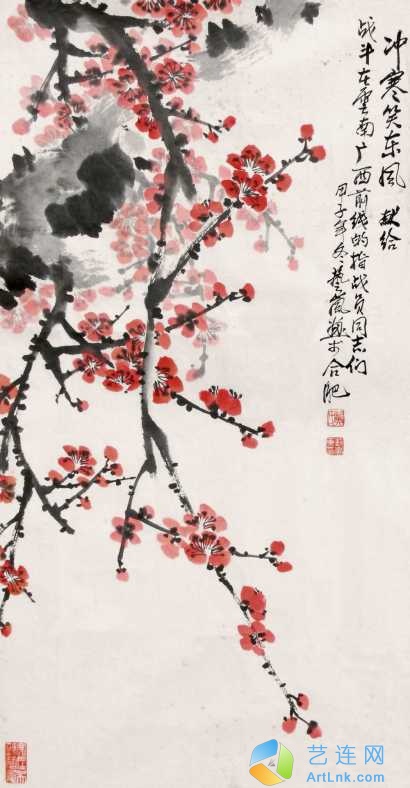 冲寒笑东风 献给
战斗在雲南广西前线的指战员同志们
甲子年冬 于合肥
艺连网
ArtLnk.com